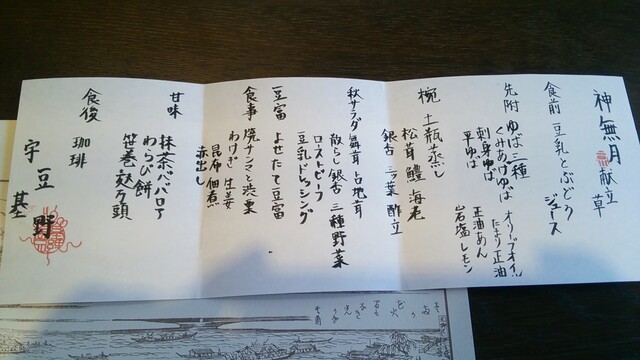 神無月 献立
草
食前 豆乳とぶどう
ジュース
先附 ゆば三種
くみあげゆば オリーブオイル
たまり正油
刺身ゆば 正油あん
平ゆば 岩塩レモン
椀 土瓶蒸し
松茸 鱧 海老
銀杏 三ツ葉 酢立
秋サラダ 舞茸 占地茸
散らし銀杏 三種野菜
ローストビーフ
豆乳ドレッシング
豆富 よせたて豆富
食事 焼サンマと渋栗
わけぎ 生姜
昆布佃煮
赤出し
甘味 抹茶ババロア
わらび餅
笹巻麸万頭
食後 珈琲
宇豆基野